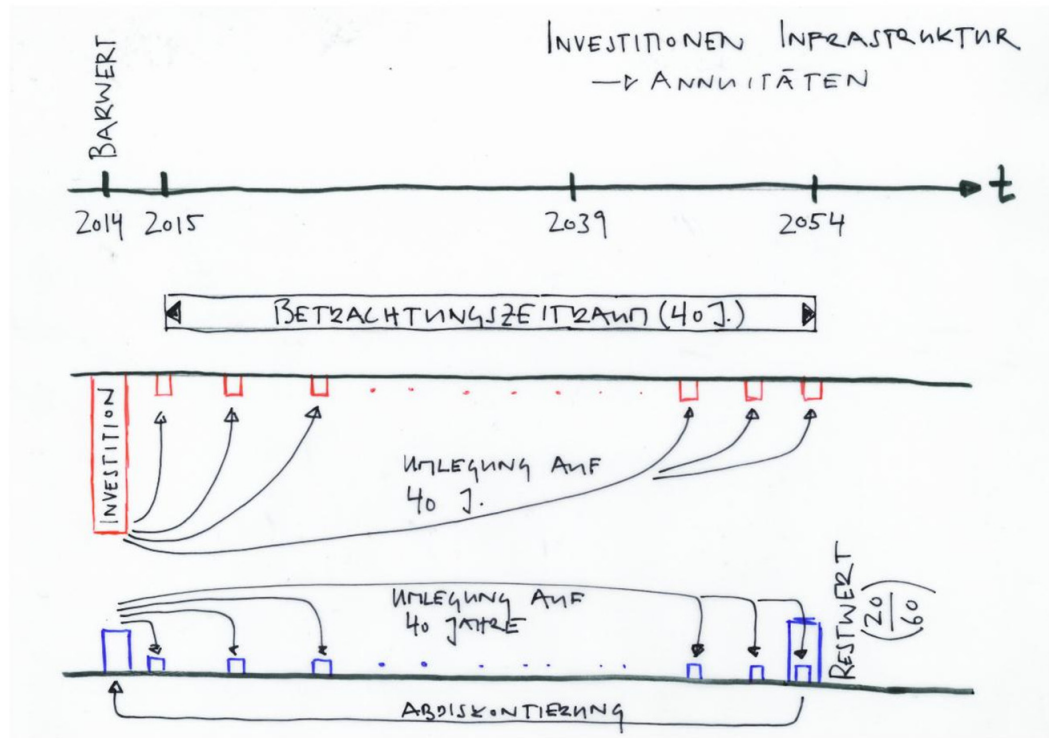 INVESTITIONEN INFRASTRUKTUR
→ ANNUITÄTEN
BARWERT
t
2014 2015 2039 2054
BETRACHTUNGSZEITRAUM (40 J.)
INVESTITION
UMLEGUNG AUF
40 J.
UMLEGUNG AUF
40 JAHRE
RESTWERT
(20/60)
ABDISKONTIERUNG